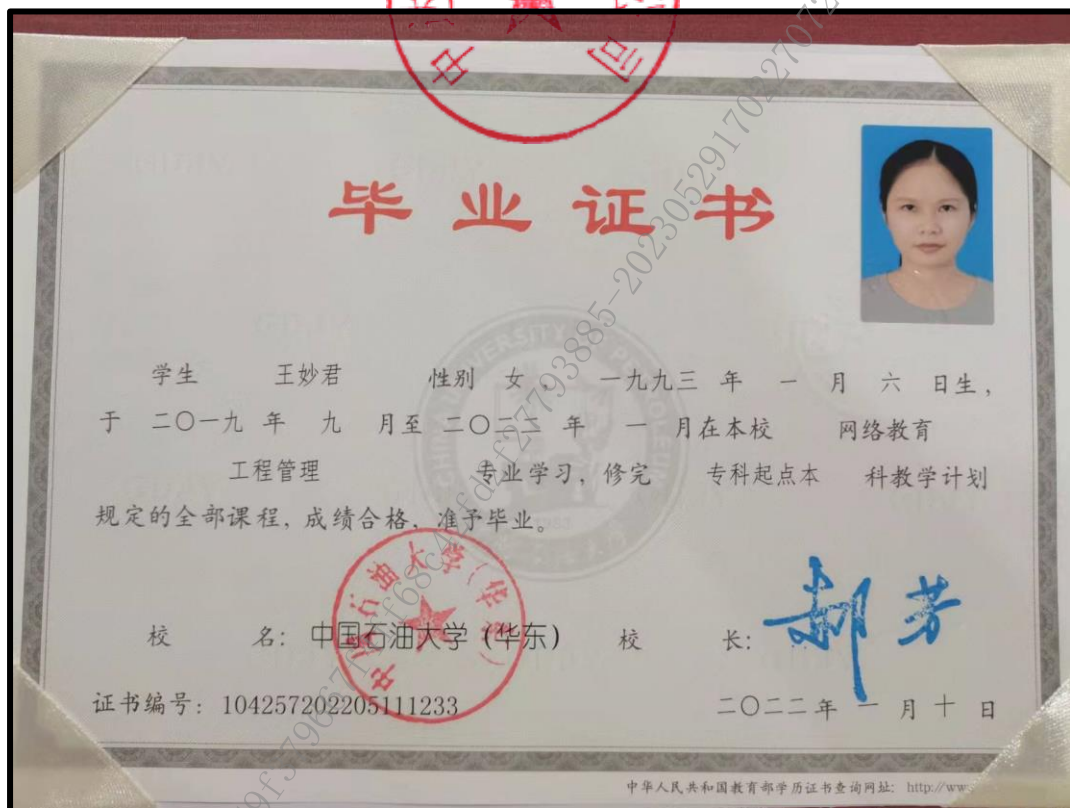 毕业证书
学生 王妙君 性别 女， 一九九三 年 一 月 六 日生，
于 二〇一九 年 九 月至 二〇二二 年 一 月在本校 网络教育
工程管理 专业学习，修完 专科起点本 科教学计划
规定的全部课程，成绩合格，准予毕业。
校 名：中国石油大学（华东） 校 长：郝芳
证书编号：104257202205111233 二〇二二年 一 月 十 日
中华人民共和国教育部学历证书查询网址：http://www.